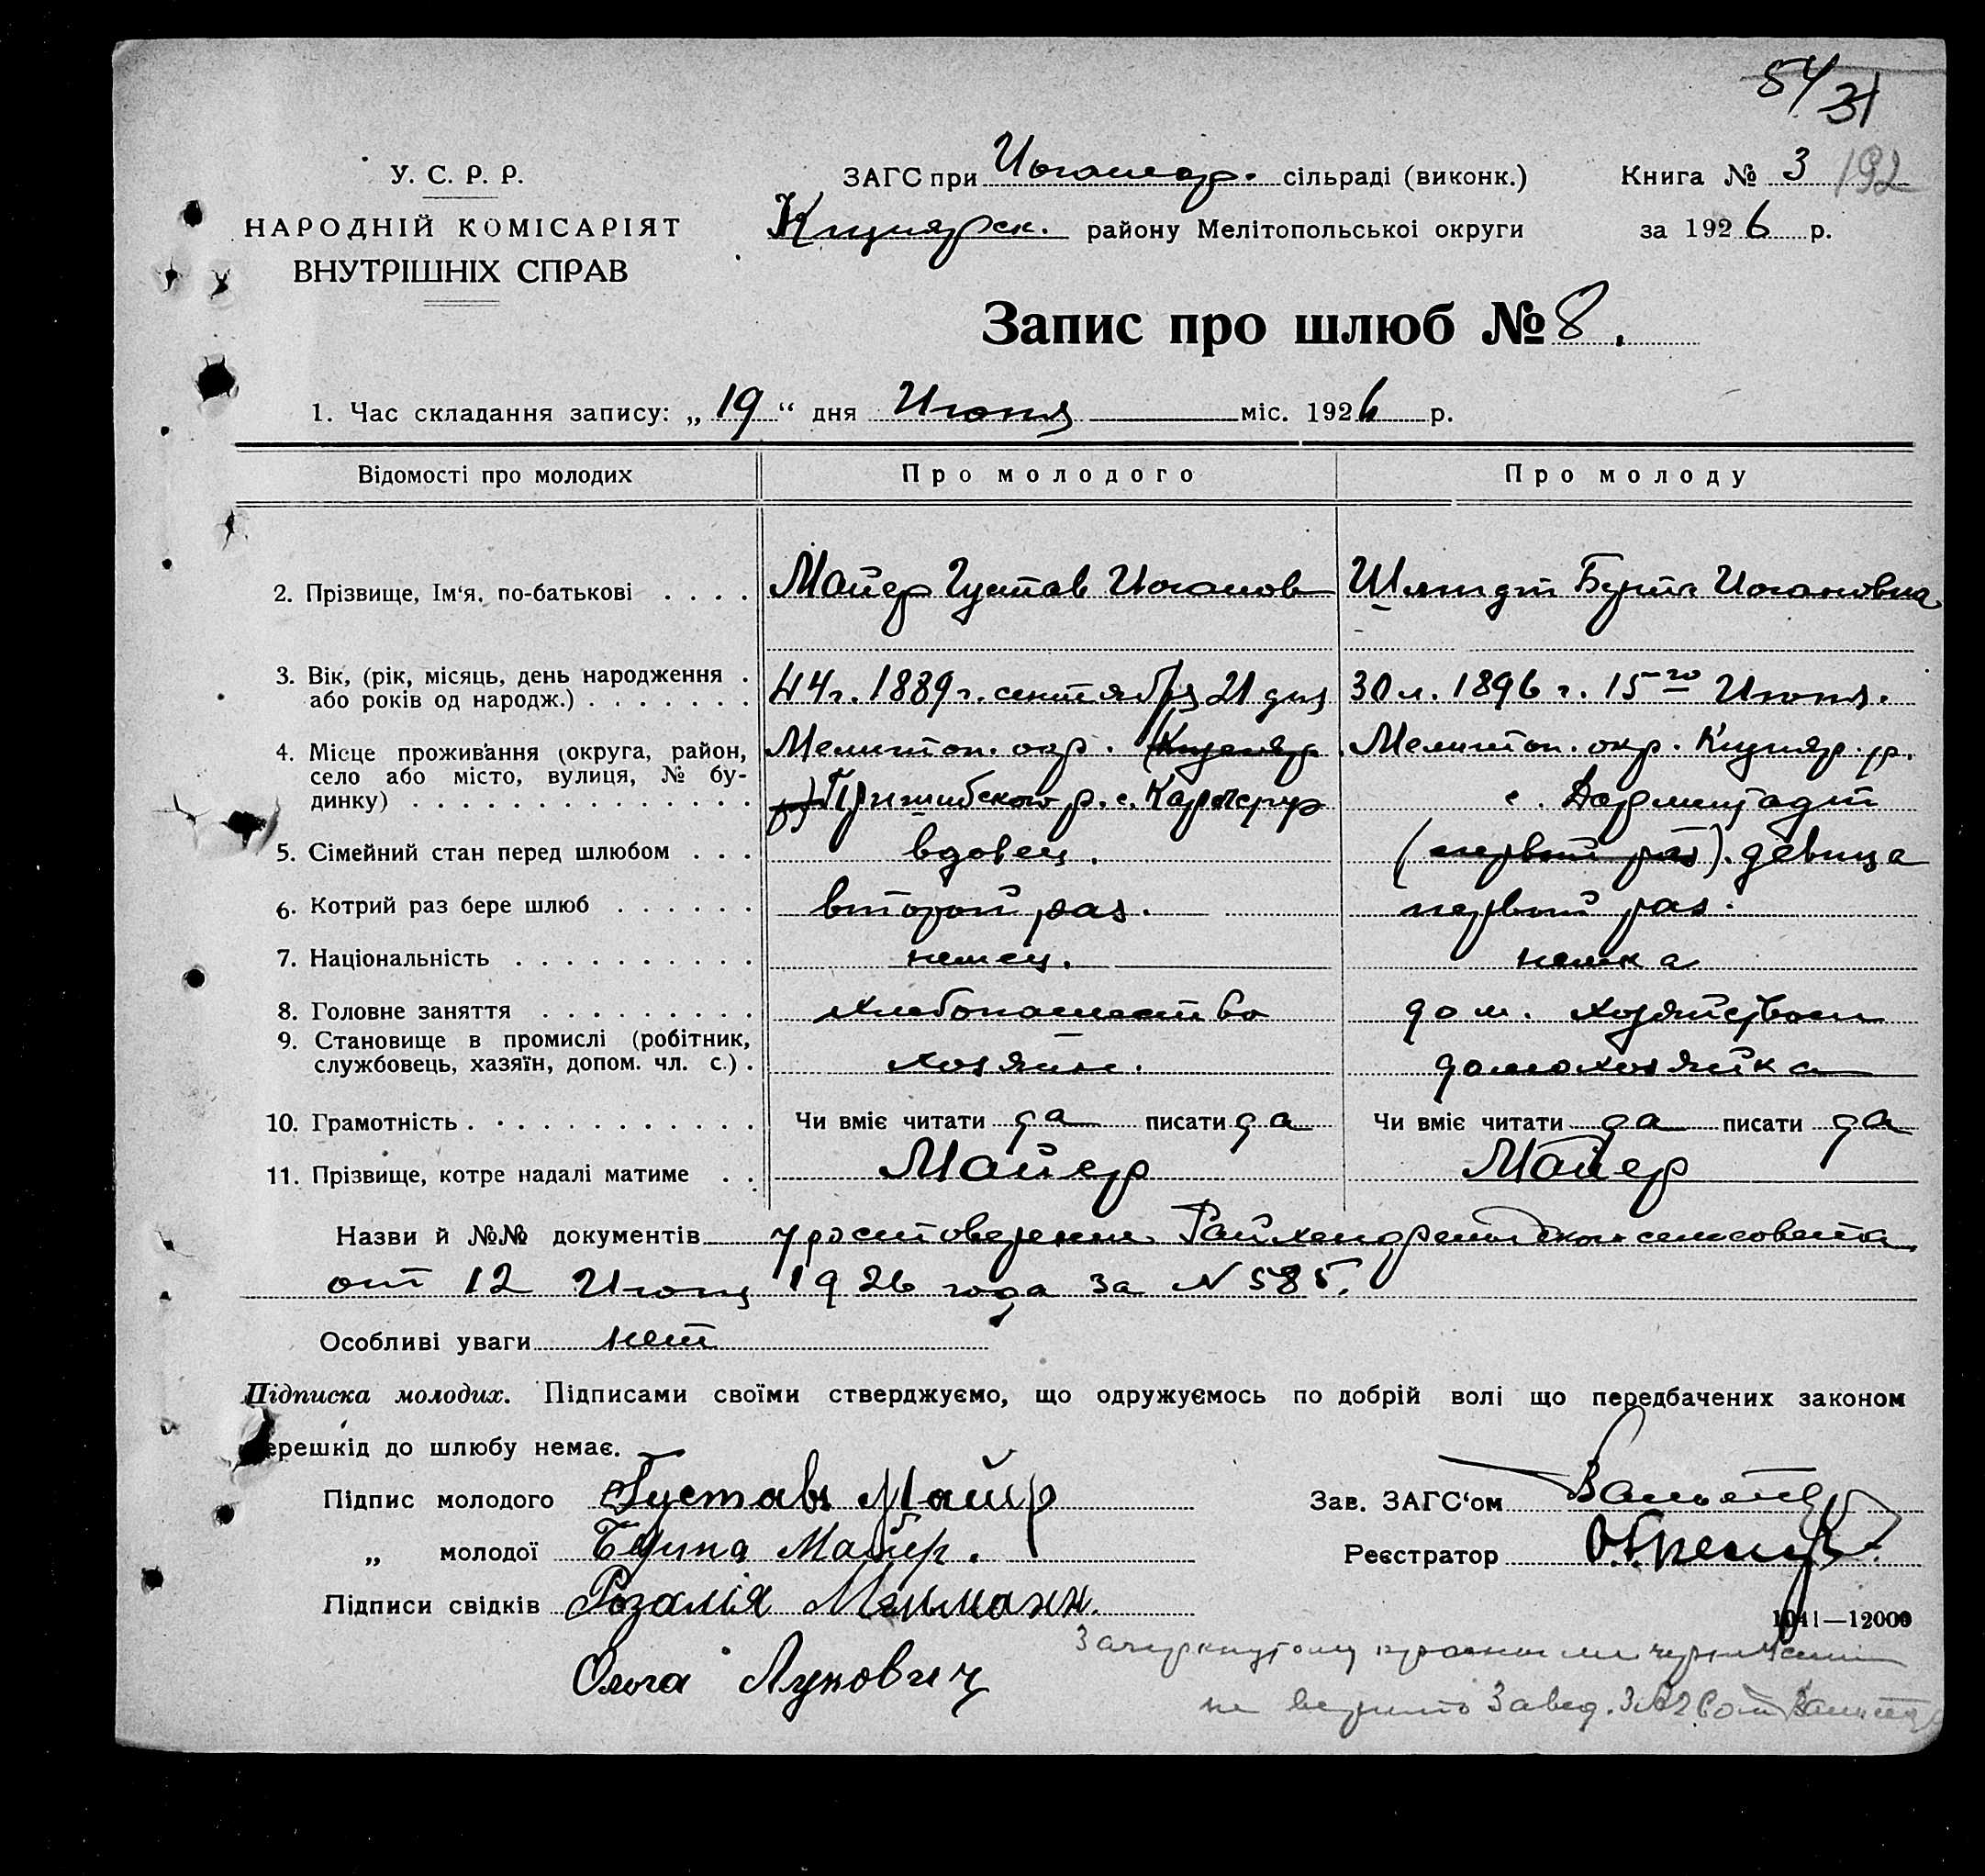 54/31
У. С. Р. Р.
НАРОДНІЙ КОМІСАРІЯТ
ВНУТРІШНІХ СПРАВ
ЗАГС при сільраді (виконк.)
Книга № 3 192
району Мелітопольської округи
за 1926 р.
Запис про шлюб № 8.
1. Час складання запису: „19“ дня Июня міс. 1926 р.
Відомості про молодих
Про молодого
Про молоду
2. Прізвище, Ім'я, по-батькові
Майер Густав Иоганов
Шмидт Берта Иогановна
3. Вік, (рік, місяць, день народження
або років од народж.)
44 г. 1889 г. сентября 21 дня
30 л. 1896 г. 15го Июня.
4. Місце проживання (округа, район,
село або місто, вулиця, № бу-
динку)
Мелитоп. окр. (Кизеляр
р) Пришибского р. с. Карлсруэ
Мелитоп. окр. р.
с. Дармштадт
5. Сімейний стан перед шлюбом
вдовец.
(первый раз). девица
6. Котрий раз бере шлюб
второй раз.
первый раз.
7. Національність
немец.
немка
8. Головне заняття
хлебопашество
дом. хозяйством
9. Становище в промислі (робітник,
службовець, хазяїн, допом. чл. с.)
хозяин.
домохозяйка
10. Грамотність
Чи вміє читати да писати да
Чи вміє читати да писати да
11. Прізвище, котре надалі матиме
Майер
Майер
Назви й №№ документів удостоверение сельсовета
от 12 Июня 1926 года за N 585.
Особливі уваги нет
Підписка молодих. Підписами своїми стверджуємо, що одружуємось по добрій волі що передбачених законом
ерешкід до шлюбу немає.
Підпис молодого Густавъ Майер
Зав. ЗАГС'ом
„ молодої Майер.
Реєстратор
Підписи свідків Розалія
1041—12000
Ольга Лукович
Зачеркнутому красными чернилами
не верить Завед. ЗАГСом